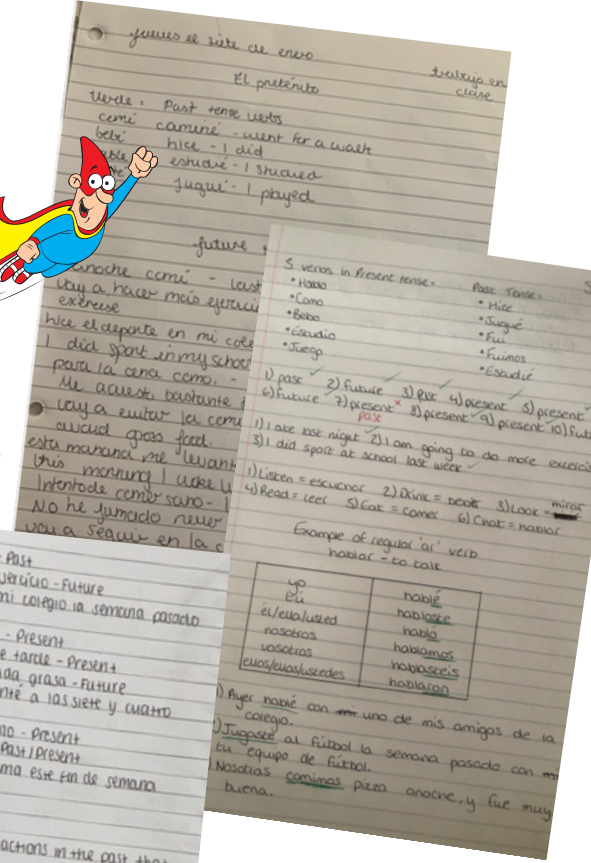 jueves el siete de enero
trabajo en
clase
El pretérito
Verde = Past tense verbs
comí caminé - went for a walk
bebí hice - I did
estudié - I studied
jugué - I played
future
anoche comí -
voy a hacer más
exercise
hice el deporte en mi
I did sport in my school
para la cena como, -
Me acuest, bastante
voy a evitar la
avoid gross food.
esta manana me
this morning I woke
Intento de comer sano -
No he fumado never
voy a seguir en la
5 verbs in Present tense:
• Hablo
• Como
• Bebo
• Escudio
• Juego
Past Tense:
• Hice
• Jugué
• Fui
• Fuimos
• Escudié
1) past 2) future 3) past 4) present 5) present
6) future 7) present 8) present 9) present 10)
past
1) I ate last night 2) I am going to do more
3) I did sport at school last week
1) Listen = escuchar 2) Drink = 3) Look = mirar
4) Read = leer 5) Eat = comer 6) Chat = hablar
Example of regular 'ar' verb
hablar - to talk
yo hablé
tú hablaste
él/ella/usted habló
nosotros hablamos
vosotros hablasteis
ellos/ellas/ustedes hablaron
1) Ayer hablé con uno de mis amigos de la
colegio.
) Jugaste al fútbol la semana pasado con
tu equipo de fútbol.
Nosotras comimos pizza anoche, y fue muy
buena.
- Past
- Future
mi colegio la semana pasado
- Present
tarde - Present
grasa - Future
a las siete y cuatro
- Present
Past/Present
este fin de semana
actions in the past